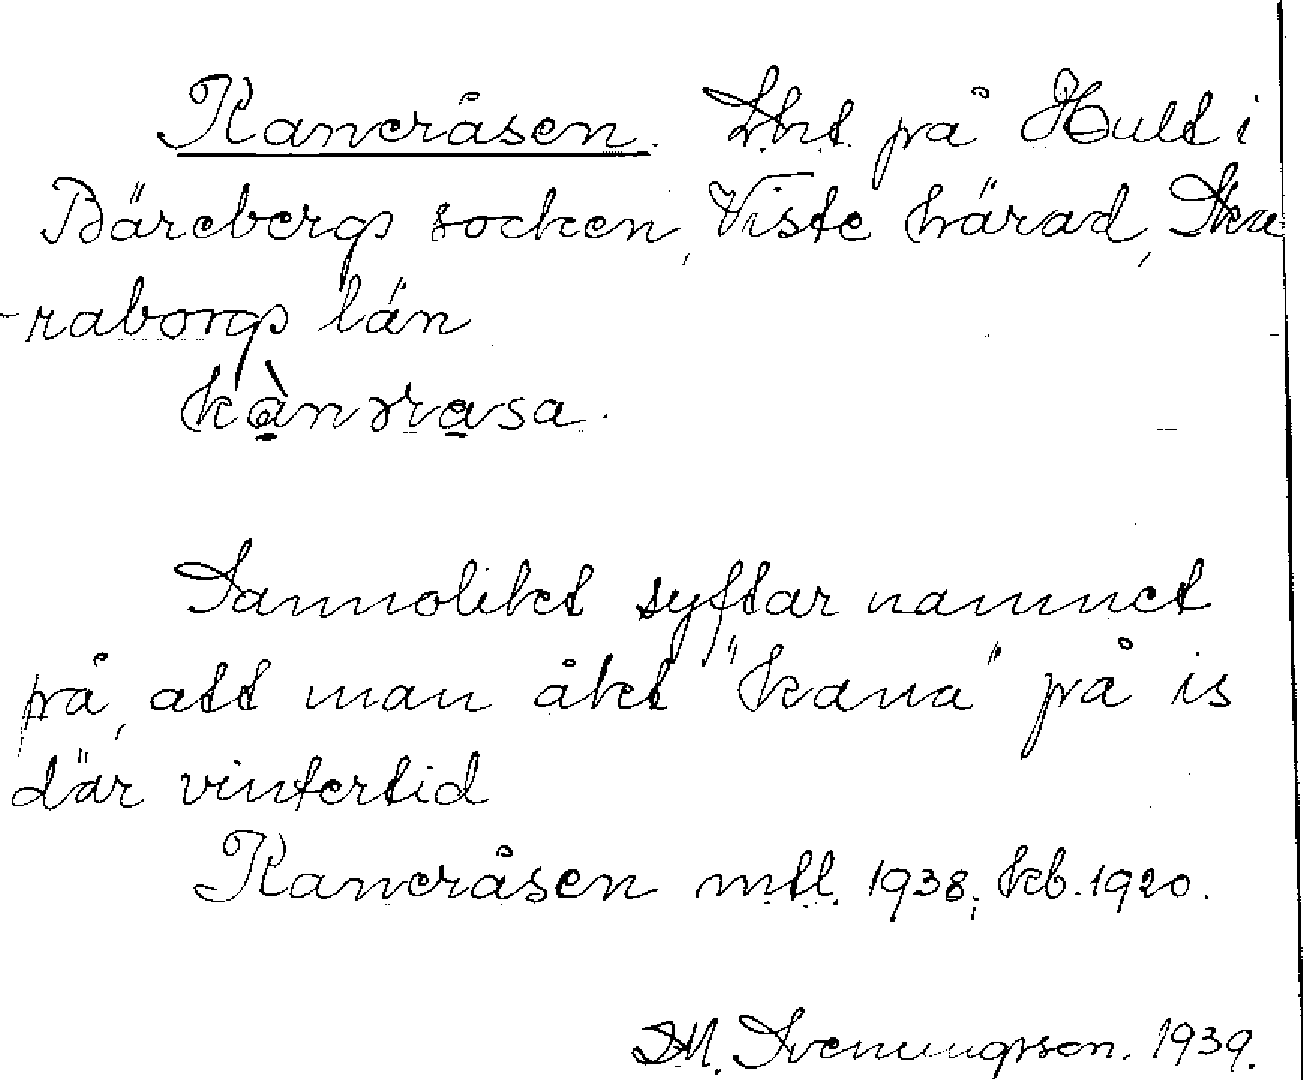 Kaneråsen. Lht. på Hult i
Bärebergs socken, Viste härad, Ska
-raborgs län
kànərasa.
Sannolikt syftar namnet
på, att man åkt "kana" på is
där vintertid
Kaneråsen mtl. 1938; kb. 1920.
M. Svenungsson. 1939.